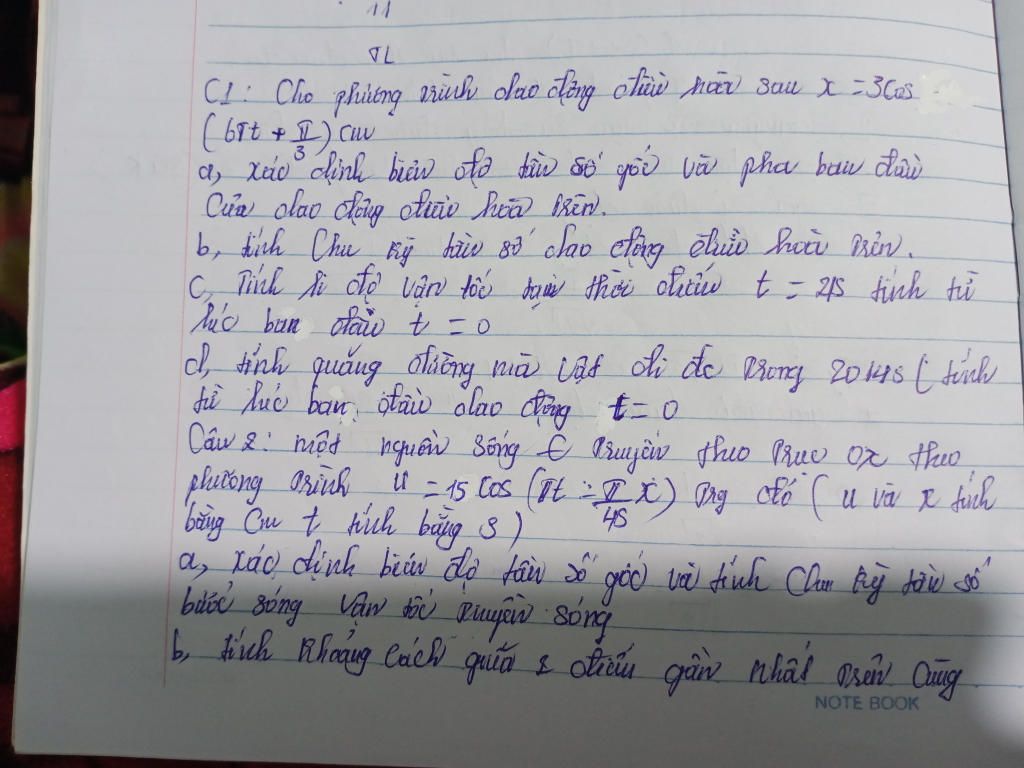 11
TL
C1: Cho phương trình dao động điều hoà sau x = 3 cos
(6πt + π/3) cm
a, xác định biên độ tần số góc và pha ban đầu
của dao động điều hoà trên.
b, tính chu kỳ tần số dao động điều hoà trên.
C, Tính li độ vận tốc tại thời điểm t = 2s tính từ
lúc ban đầu t = 0
d, tính quãng đường mà vật đi đc trong
từ lúc ban đầu dao động t = 0
Câu 2: một nguồn sóng truyền theo trục ox theo
phương trình u = 15 cos (πt - π/45 x) trg đó (u và x tính
bằng cm t tính bằng s)
a, xác định biên độ tần số góc và tính chu kỳ tần số
bước sóng vận tốc truyền sóng
b, tính khoảng cách giữa 2 điểm gần nhất trên cùng
NOTE BOOK